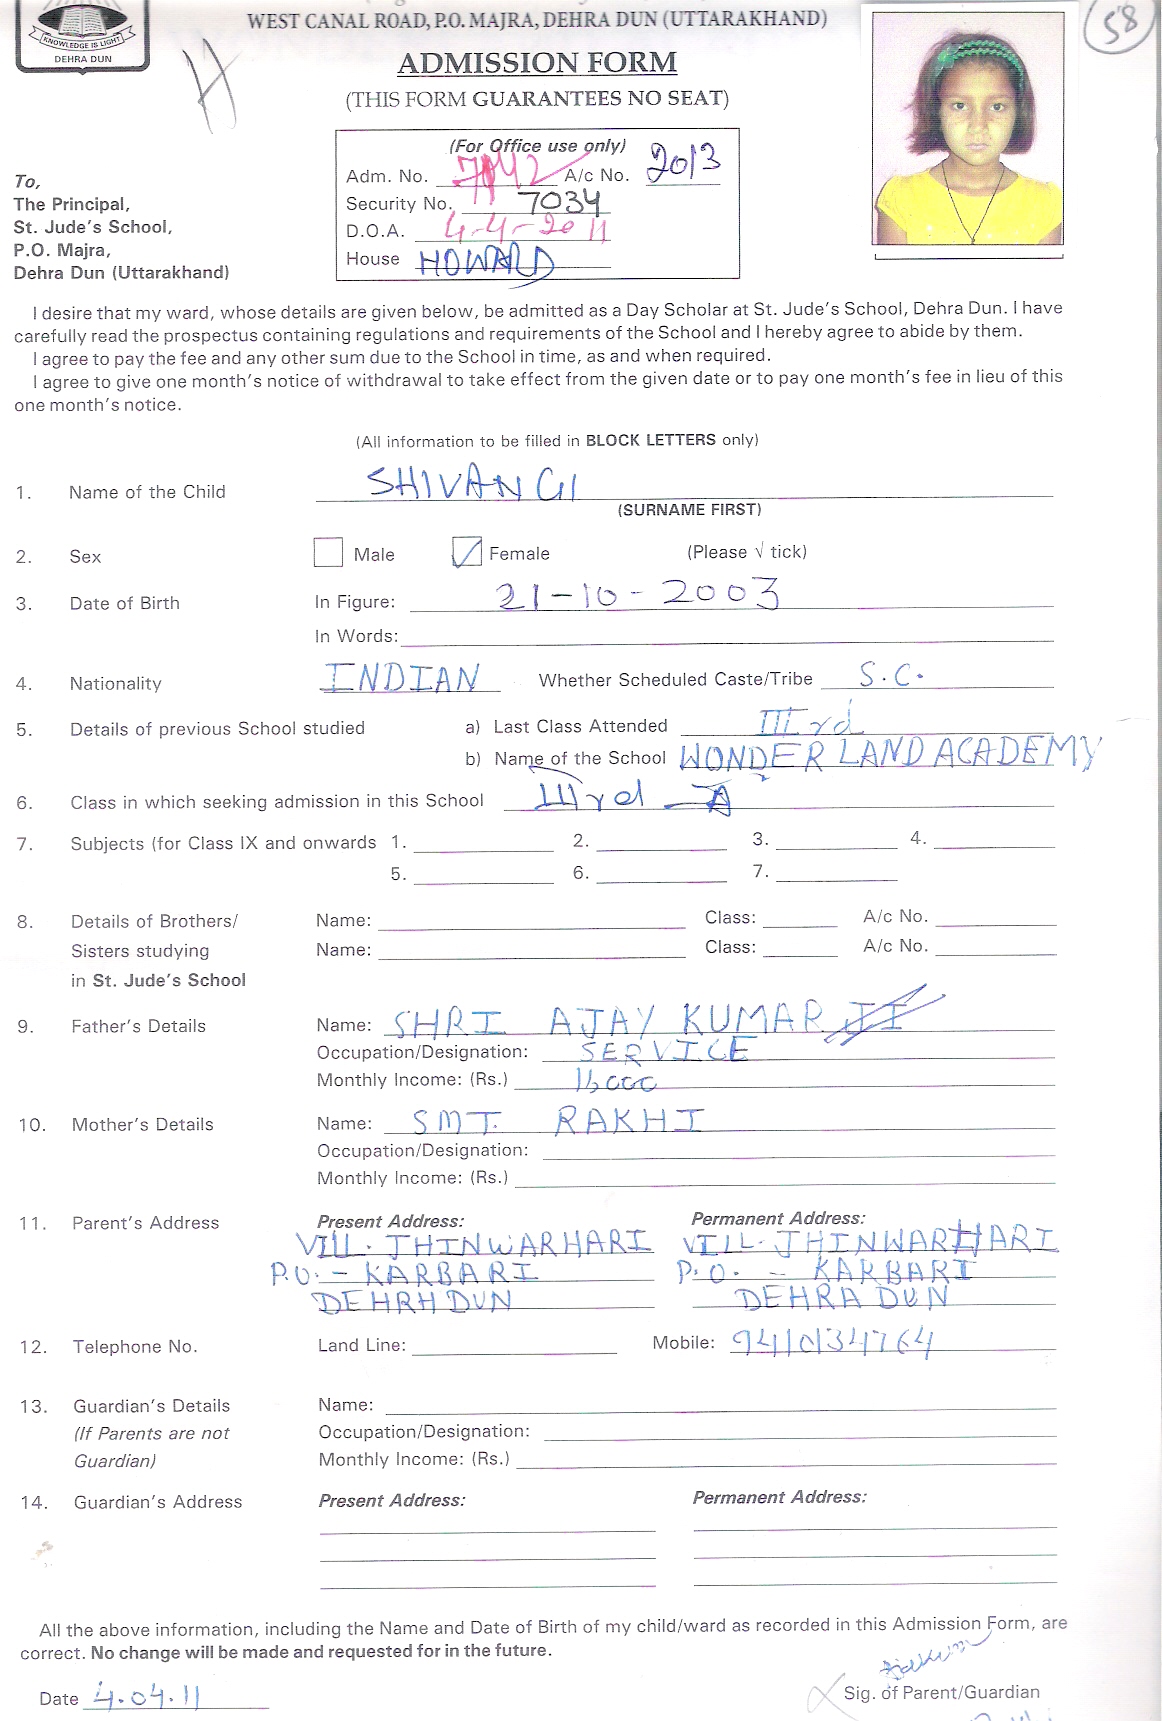 KNOWLEDGE IS LIGHT
DEHRA DUN
WEST CANAL ROAD, P.O. MAJRA, DEHRA DUN (UTTARAKHAND)
58
ADMISSION FORM
(THIS FORM GUARANTEES NO SEAT)
(For Office use only)
Adm. No. 7042 A/c No. 2013
Security No. 7034
D.O.A. 4-4-2011
House HOWARD
To,
The Principal,
St. Jude's School,
P.O. Majra,
Dehra Dun (Uttarakhand)
I desire that my ward, whose details are given below, be admitted as a Day Scholar at St. Jude's School, Dehra Dun. I have
carefully read the prospectus containing regulations and requirements of the School and I hereby agree to abide by them.
I agree to pay the fee and any other sum due to the School in time, as and when required.
I agree to give one month's notice of withdrawal to take effect from the given date or to pay one month's fee in lieu of this
one month's notice.
(All information to be filled in BLOCK LETTERS only)
1. Name of the Child SHIVANGI
(SURNAME FIRST)
2. Sex Male Female (Please √ tick)
3. Date of Birth In Figure: 21-10-2003
In Words:
4. Nationality INDIAN Whether Scheduled Caste/Tribe S.C.
5. Details of previous School studied a) Last Class Attended IIIrd
b) Name of the School WONDER LAND ACADEMY
6. Class in which seeking admission in this School IIIrd - A
7. Subjects (for Class IX and onwards 1. 2. 3. 4.
5. 6. 7.
8. Details of Brothers/ Name: Class: A/c No.
Sisters studying Name: Class: A/c No.
in St. Jude's School
9. Father's Details Name: SHRI AJAY KUMAR
Occupation/Designation: SERVICE
Monthly Income: (Rs.)
10. Mother's Details Name: SMT. RAKHI
Occupation/Designation:
Monthly Income: (Rs.)
11. Parent's Address Present Address: Permanent Address:
VILL. JHINWARHARI VILL. JHINWARHARI
P.O. - KARBARI P.O. - KARBARI
DEHRH DUN DEHRA DUN
12. Telephone No. Land Line: Mobile: 9410134764
13. Guardian's Details Name:
(If Parents are not Occupation/Designation:
Guardian) Monthly Income: (Rs.)
14. Guardian's Address Present Address: Permanent Address:
All the above information, including the Name and Date of Birth of my child/ward as recorded in this Admission Form, are
correct. No change will be made and requested for in the future.
Date 4.04.11 Sig. of Parent/Guardian